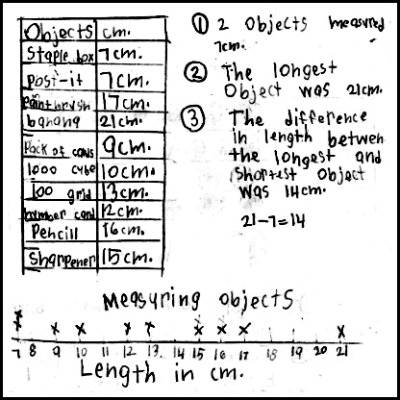 Objects cm.
Staple box 7cm.
post-it 7cm.
paintbrush 17cm.
banana 21cm.
Pack of cards 9cm.
1000 cube 10cm.
100 grid 13cm.
number card 12cm.
Pencill 16cm.
Sharpener 15cm.
① 2 objects measured
7cm.
② The longest
Object was 21cm.
③ The difference
in length betwen
the longest and
Shortest object
was 14cm.
21-7=14
Measuring objects
7 8 9 10 11 12 13 14 15 16 17 18 19 20 21
Length in cm.